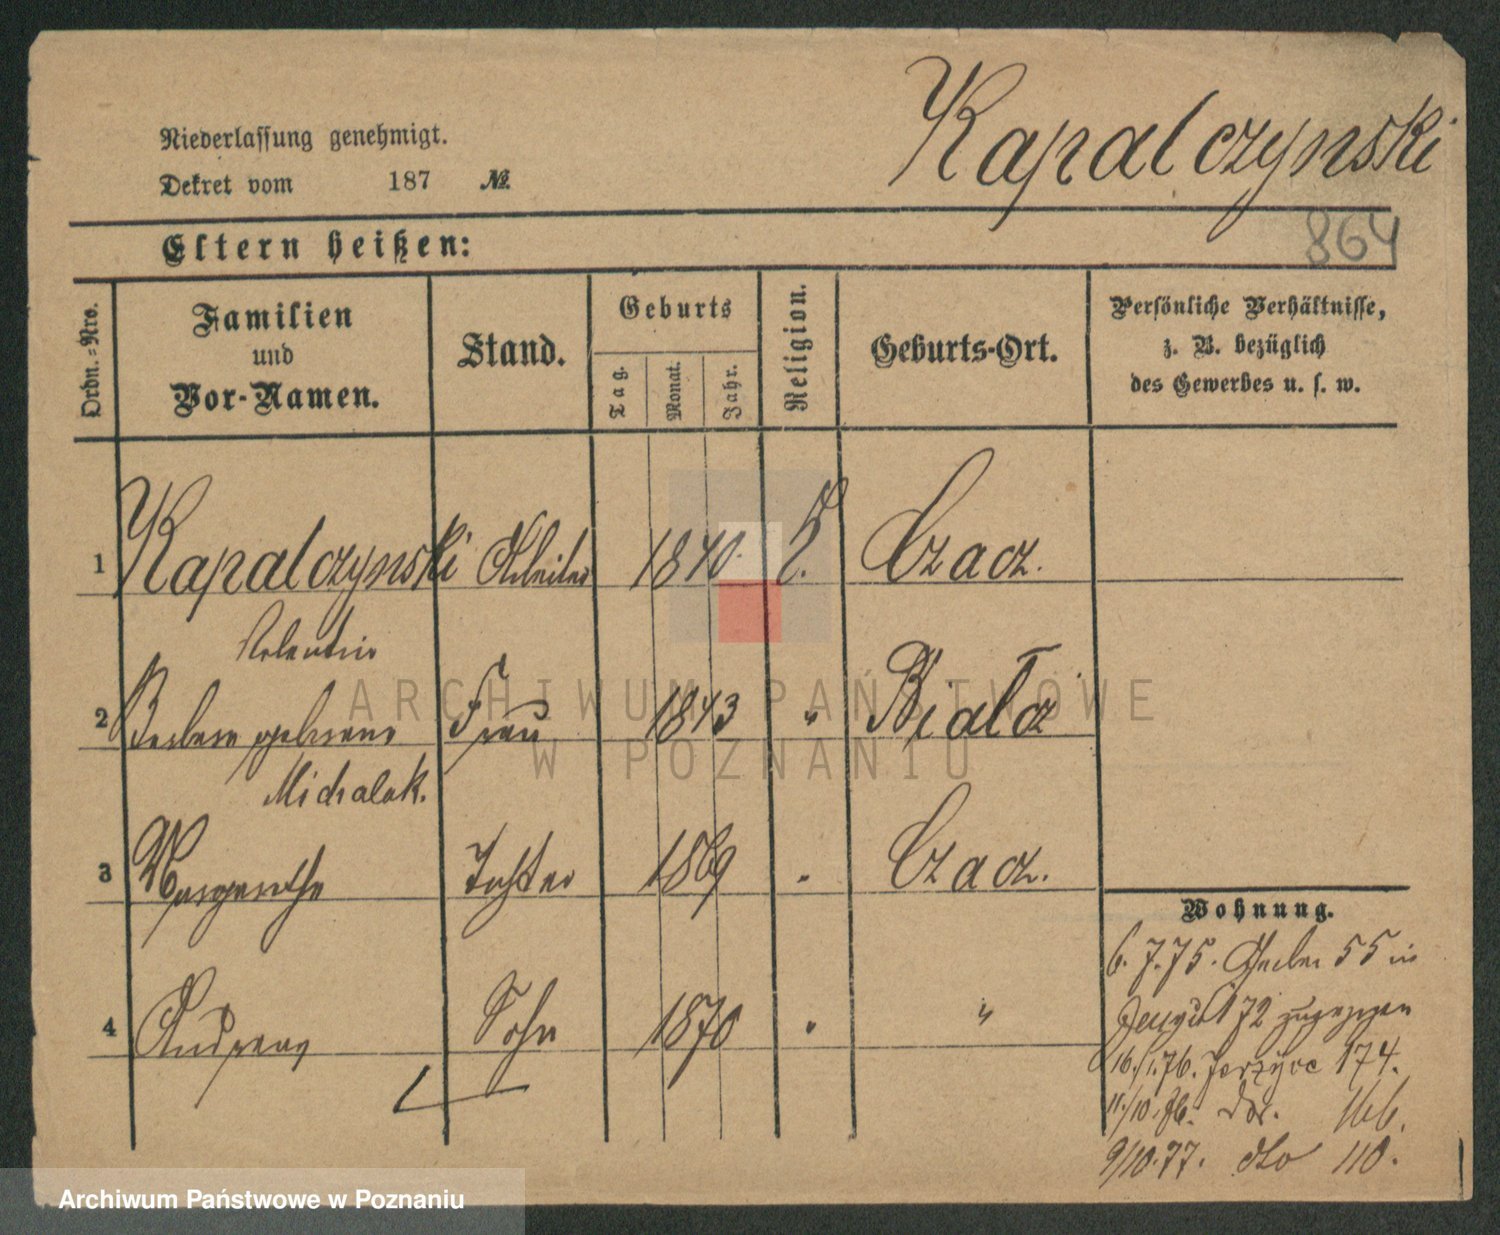 Kapalczynski
Niederlassung genehmigt.
Dekret vom 187 №.
864
Eltern heißen:
Ordn.=Nro.
Familien
und
Vor-Namen.
Stand.
Geburts
Tag.
Monat.
Jahr.
Religion.
Geburts-Ort.
Persönliche Verhältnisse,
z. B. bezüglich
des Gewerbes u. s. w.
1 Kapalczynski Arbeiter 1840. Czacz.
Valentin
2 Barbara geborene Frau 1843 " Białcz
Michalak.
3 Margarethe Tochter 1869 " Czacz.
4 Andreas Sohn 1870 " "
Wohnung.
6.7.75. 55 in
172 zugezogen
16./1.76. Jerzyce 174.
11./10.76. do. 166.
9/10.77. dto 110.
ARCHIWUM PAŃSTWOWE
W POZNANIU
Archiwum Państwowe w Poznaniu